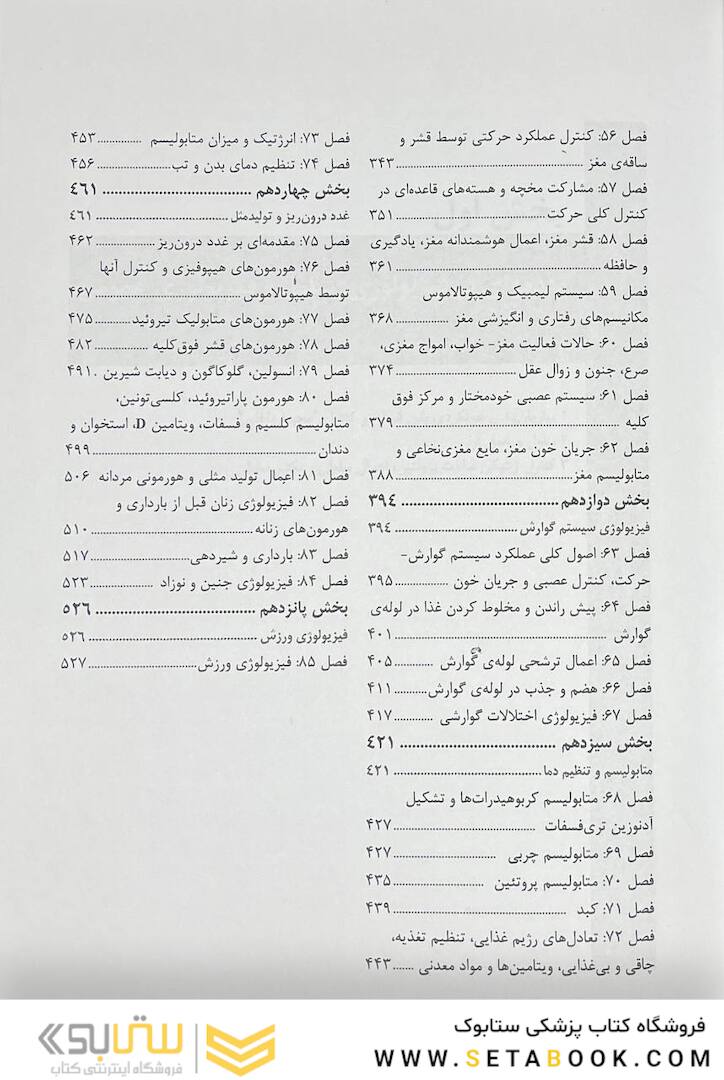 فصل ۵۶: کنترل عملکرد حرکتی توسط قشر و
ساقه‌ی مغز ........................................ ۳۴۳
فصل ۵۷: مشارکت مخچه و هسته‌های قاعده‌ای در
کنترل کلی حرکت ................................ ۳۵۱
فصل ۵۸: قشر مغز، اعمال هوشمندانه مغز، یادگیری
و حافظه ........................................... ۳۶۱
فصل ۵۹: سیستم لیمبیک و هیپوتالاموس
مکانیسم‌های رفتاری و انگیزشی مغز ........... ۳۶۸
فصل ۶۰: حالات فعالیت مغز- خواب، امواج مغزی،
صرع، جنون و زوال عقل ........................ ۳۷۴
فصل ۶۱: سیستم عصبی خودمختار و مرکز فوق
کلیه ............................................... ۳۷۹
فصل ۶۲: جریان خون مغز، مایع مغزی‌نخاعی و
متابولیسم مغز .................................... ۳۸۸
بخش دوازدهم .................................... ۳۹۴
فیزیولوژی سیستم گوارش ....................... ۳۹٤
فصل ۶۳: اصول کلی عملکرد سیستم گوارش-
حرکت، کنترل عصبی و جریان خون ........... ۳۹۵
فصل ۶۴: پیش راندن و مخلوط کردن غذا در لوله‌ی
گوارش ............................................ ۴۰۱
فصل ۶۵: اعمال ترشحی لوله‌ی گوارش ........ ۴۰۵
فصل ۶۶: هضم و جذب در لوله‌ی گوارش ....... ۴۱۱
فصل ۶۷: فیزیولوژی اختلالات گوارشی ........ ۴۱۷
بخش سیزدهم .................................... ٤۲۱
متابولیسم و تنظیم دما ........................... ٤۲۱
فصل ۶۸: متابولیسم کربوهیدرات‌ها و تشکیل
آدنوزین تری‌فسفات .............................. ۴۲۷
فصل ۶۹: متابولیسم چربی ..................... ۴۲۷
فصل ۷۰: متابولیسم پروتئین ................... ۴۳۵
فصل ۷۱: کبد .................................... ۴۳۹
فصل ۷۲: تعادل‌های رژیم غذایی، تنظیم تغذیه،
چاقی و بی‌غذایی، ویتامین‌ها و مواد معدنی ...... ۴۴۳
فصل ۷۳: انرژتیک و میزان متابولیسم ........... ۴۵۳
فصل ۷۴: تنظیم دمای بدن و تب ................ ۴۵۶
بخش چهاردهم ................................... ٤٦۱
غدد درون‌ریز و تولیدمثل ......................... ٤٦۱
فصل ۷۵: مقدمه‌ای بر غدد درون‌ریز ............. ۴۶۲
فصل ۷۶: هورمون‌های هیپوفیزی و کنترل آنها
توسط هیپوتالاموس .............................. ۴۶۷
فصل ۷۷: هورمون‌های متابولیک تیروئید ......... ۴۷۵
فصل ۷۸: هورمون‌های قشر فوق‌کلیه ............ ۴۸۲
فصل ۷۹: انسولین، گلوکاگون و دیابت شیرین . ۴۹۱
فصل ۸۰: هورمون پاراتیروئید، کلسی‌تونین،
متابولیسم کلسیم و فسفات، ویتامین D، استخوان و
دندان .............................................. ۴۹۹
فصل ۸۱: اعمال تولید مثلی و هورمونی مردانه ۵۰۶
فصل ۸۲: فیزیولوژی زنان قبل از بارداری و
هورمون‌های زنانه ................................. ۵۱۰
فصل ۸۳: بارداری و شیردهی .................... ۵۱۷
فصل ۸۴: فیزیولوژی جنین و نوزاد .............. ۵۲۳
بخش پانزدهم .................................... ۵۲٦
فیزیولوژی ورزش .................................. ۵۲٦
فصل ۸۵: فیزیولوژی ورزش ...................... ۵۲۷
فروشگاه کتاب پزشکی ستابوک
WWW.SETABOOK.COM
ستابوک
فروشگاه اینترنتی کتاب